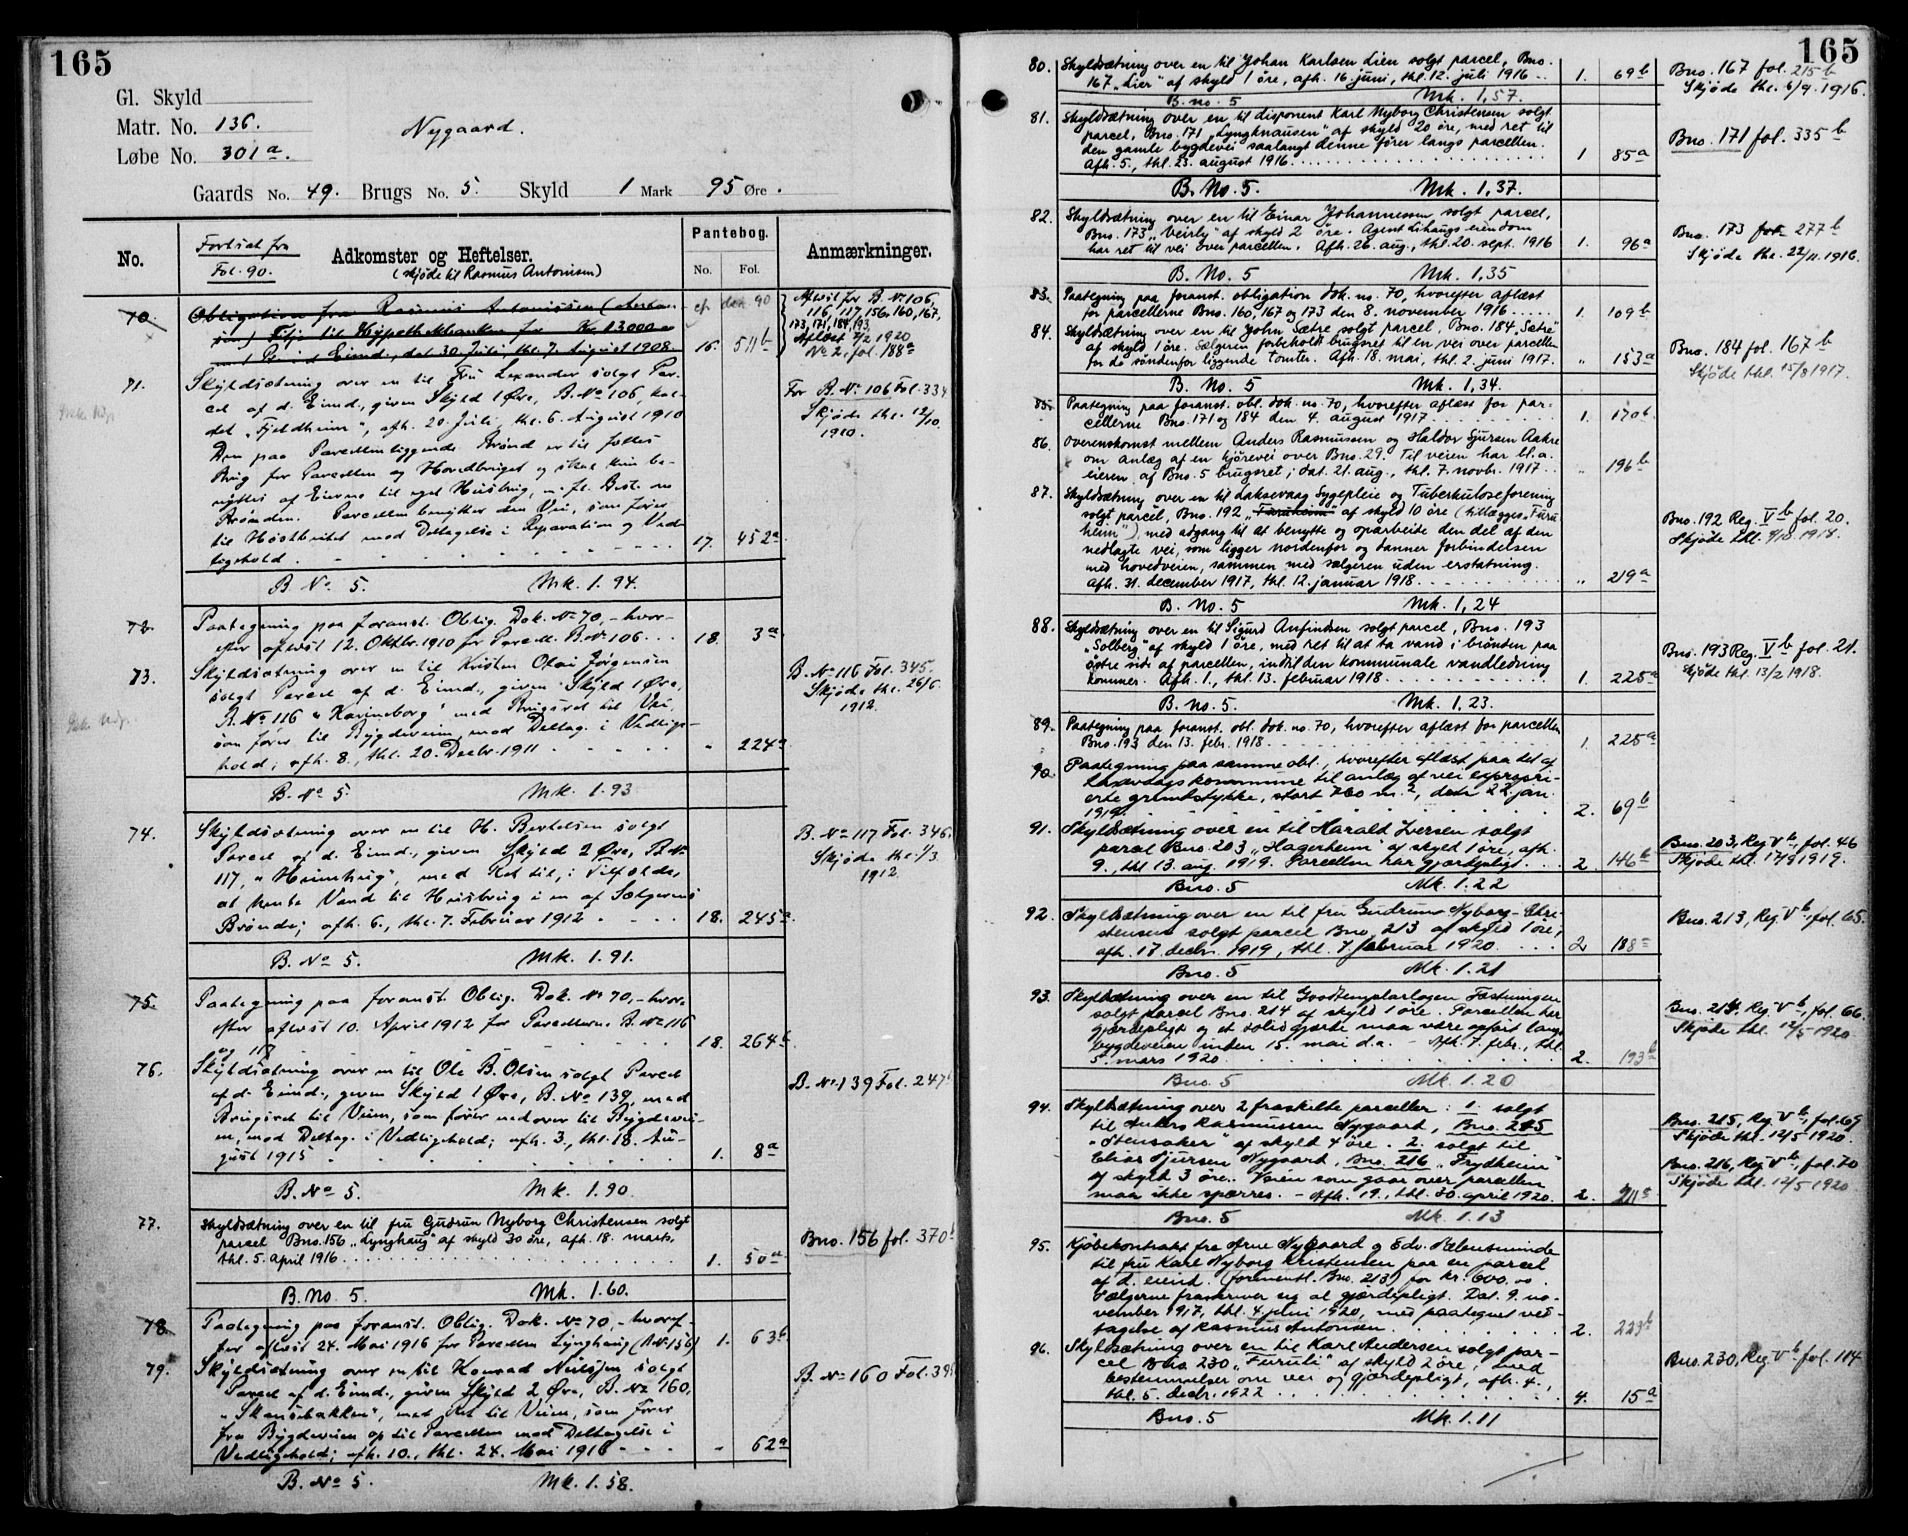 165
Gl. Skyld
Matr. No. 136.
Løbe No. 301 a.
Nygaard.
Gaards No. 49. Brugs No. 5. Skyld 1 Mark 95 Øre.
No.
Fortsat fra
Fol. 90.
Adkomster og Heftelser.
(skjøde til Rasmus Antonisen)
Pantebog.
No. Fol.
Anmærkninger.
70. Obligation fra Rasmus Antonissen
til Hypothekbanken for Kr. 13000
i Eiend., dat. 30. Juli, thl. 7. August 1908. 16. 511 b
Afløst for B. No 106,
116, 117, 156, 160, 167,
173, 171, 184, 193
Afløst 2/2 1920
No 2, fol. 188 a
71. Skyldsætning over en til Fru Lexander solgt Par-
cel af d. Eiend., given Skyld 1 Øre, B. No 106, kal-
det "Fjeldheim", afh. 20. Juli, thl. 6. August 1910
Den paa Parcellen liggende Brønd er til fælles
Brug for Parcellen og Hovedbruget og skal kun be-
nyttes af Eierne til eget Husbrug, m. fl. Best. om
Brønden. Parcellen benytter den Vei, som fører
til Hovedbruket mod Deltagelse i Reparation og Ved-
ligehold. 17. 452 a
For B. No 106 Fol. 334
Skjøde thl. 12/10
1910.
B No 5. Mk. 1.94.
72. Paategning paa foranst. Oblig. Dok. No 70, - hvor-
efter afløst 12. Oktbr. 1910 for Parcell. B. No 106... 18. 3 a
73. Skyldsætning over en til Kristen Olai Jørgensen
solgt Parcel af d. Eiend., given Skyld 1 Øre,
B. No 116 "Karineborg" med Brugsret til Vei,
som fører til Bygdeveien mod Deltag. i Vedlige-
hold; afh. 8., thl. 20. Decbr. 1911 " 224 a
B. No 116 Fol. 345.
Skjøde thl. 26/6.
1912.
B. No 5. Mk. 1.93
74. Skyldsætning over en til H. Bertelsen solgt
Parcel af d. Eiend., given Skyld 2 Øre, B. No
117, "Heimhug", med Ret til, i Tilfælde,
at hente Vand til Husbrug i en af Sælgerens
Brønde; afh. 6., thl. 7. Februar 1912 18. 245 a
B. No 117 Fol. 346.
Skjøde thl. 1/3.
1912
B. No 5. Mk. 1.91.
75. Paategning paa foranst. Oblig. Dok. No 70, - hvor-
efter afløst 10. April 1912 for Parcellerne B. No 116
og 117 18. 264 b
76. Skyldsætning over en til Ole B. Olsen solgt Parcel
af d. Eiend., given Skyld 1 Øre, B. No 139, med
Brugsret til Veien, som fører nedover til Bygdevei-
en, mod Deltag. i Vedligehold; afh. 3., thl. 18. Au-
gust 1915 1. 8 a
B. No 139 Fol. 247 b
B. No 5. Mk. 1.90.
77. Skyldsætning over en til fru Gudrun Nyborg Christensen solgt
parcel Bno. 156 "Lynghaug" af skyld 30 øre, afh. 18. marts,
thl. 5. april 1916. 1. 50 a
Bno. 156 fol. 370 b
B. No. 5. Mk. 1.60.
78. Paategning paa foranst. Oblig. Dok. No 70, - hvoref-
ter afløst 24. Mai 1916 for Parcellen Lynghaug (B. No 156) 1. 63 b
79. Skyldsætning over en til Konrad Nielsen solgt
Parcel af d. Eiend., given Skyld 2 Øre, B. No 160,
"Skansebakken", med Ret til Veien, som fører
fra Bygdeveien op til Parcellen mod Deltagelse i
Vedligehold; afh. 10., thl. 24. Mai 1916 - 62 a
B. No 160 Fol. 398
B. No 5. Mk. 1.58.
165
80. Skyldsætning over en til Johan Karlsen Lien solgt parcel, Bno.
167 "Lier" af skyld 1 øre, afh. 16. juni, thl. 12. juli 1916.. 1. 69 b
Bno. 167 fol. 215 b
Skjøde thl. 6/9. 1916.
B. no. 5 Mk. 1,57.
81. Skyldsætning over en til disponent Karl Nyborg Christensen solgt
parcel, Bno. 171 "Lyngknausen" af skyld 20 øre, med ret til
den gamle bygdevei saalangt denne fører langs parcellen.
Afh. 5., thl. 23. august 1916. 1 85 a
Bno. 171 fol. 335 b
B. No. 5. Mk. 1,37.
82. Skyldsætning over en til Einar Johannessen solgt parcel,
Bno. 173 "Veirly" af skyld 2 øre. Agent Lihaugs eiendom
har ret til vei over parcellen. Afh. 26. aug., thl. 20. sept. 1916 1. 96 a
Bno. 173 fol. 277 b
Skjøde thl. 22/11. 1916.
B. No. 5 Mk. 1,35
83. Paategning paa foranst. obligation dok. no. 70, hvorefter afløst
for parcellerne Bno. 160, 167 og 173 den 8. november 1916 1. 109 b
84. Skyldsætning over en til John Sætre solgt parcel, Bno. 184 "Sætre"
af skyld 1 øre. Sælgeren forbeholdt brugsret til en vei over parcellen
for de søndenfor liggende tomter. Afh. 18. mai, thl. 2. juni 1917. " 153 a
Bno. 184 fol. 167 b
Skjøde thl. 15/8 1917.
B. No. 5 Mk. 1,34.
85. Paategning paa foranst. obl. dok. no. 70, hvorefter afløst for par-
cellerne Bno. 171 og 184 den 4. august 1917 1. 170 b
86. Overenskomst mellem Anders Rasmussen og Haldor Sjursen Aakre
om anlæg af en kjørevei over Bno. 29. Til veien har bl. a.
eieren af Bno. 5 brugsret; dat. 21. aug., thl. 7. novbr. 1917.. " 196 b
87. Skyldsætning over en til Laksevaag Sygepleie og Tuberkuloseforening
solgt parcel, Bno. 192 "Furuheim" af skyld 10 øre (tillægges "Furu-
heim"), med adgang til at benytte og oparbeide den del af den
nedlagte vei, som ligger nordenfor og danner forbindelsen
med hovedveien, sammen med sælgeren uden erstatning.
Afh. 31. december 1917, thl. 12. januar 1918. " 219 a
Bno. 192 Reg. V b fol. 20.
Skjøde thl. 9/10. 1918.
B. No. 5 Mk. 1,24
88. Skyldsætning over en til Sigurd Anfindsen solgt parcel, Bno. 193
"Solberg" af skyld 1 øre, med ret til at ta vand i brønden paa
østre side af parcellen, indtil den kommunale vandledning
kommer. Afh. 1., thl. 13. februar 1918. 1. 225 a
Bno. 193 Reg. V b fol. 21.
Skjøde thl. 13/2 1918.
B. no. 5. Mk. 1,23.
89. Paategning paa foranst. obl. dok. no. 70, hvorefter afløst for parcellen
Bno. 193 den 13. febr. 1918. 1. 225 a
90. Paategning paa samme obl., hvorefter afløst paa det af
Laxevaags kommune til anlæg af vei expropri-
erte grundstykke, stort 700 m.², den 22. jan.
1919. 2. 69 b
91. Skyldsætning over en til Harald Iversen solgt
parcel Bno. 203 "Hagerheim" af skyld 1 øre, afh.
9., thl. 13. aug. 1919. Parcellen har gjærdepligt. 2. 146 b
Bno. 203, Reg. V b, fol. 46
Skjøde thl. 17/9 1919.
Bno. 5 Mk. 1.22
92. Skyldsætning over en til fru Gudrun Nyborg-Chri-
stensen solgt parcel Bno. 213 af skyld 1 øre,
afh. 17. decbr. 1919, thl. 7. februar 1920. 2 188 a
Bno. 213, Reg. V b, fol. 65.
Bno. 5 Mk. 1.21
93. Skyldsætning over en til Goodtemplarlogen Fæstningen
solgt parcel Bno. 214 af skyld 1 øre. Parcellen har
gjærdepligt og et solid gjærde maa være opført langs
bygdeveien inden 15. mai d.a. - Afh. 7. febr., thl.
5. mars 1920. 2. 193 b
Bno. 214, Reg. V b, fol. 66.
Skjøde thl. 12/5 1920.
Bno. 5 Mk. 1.20
94. Skyldsætning over 2 fraskilte parceller: 1. solgt
til Anders Rasmussen Nygaard, Bno. 215
"Stensaker" af skyld 4 øre. 2. solgt til
Elias Sjursen Nygaard, Bno. 216 "Frydheim"
af skyld 3 øre. Veien som gaar over parcellen
maa ikke spærres. - Afh. 19., thl. 30. april 1920. 2. 211 a
Bno. 215, Reg. V b, fol. 69
Skjøde thl. 12/5 1920.
Bno. 216, Reg. V b, fol. 70
Skjøde thl. 12/5 1920
Bno. 5 Mk. 1.13
95. Kjøbekontrakt fra Arne Nygaard og Edv. Helensminde
til fru Karl Nyborg Kristensen paa en parcel
af d. eiend. (formentl. Bno. 213) for kr. 600.00.
Sælgerne fraskriver sig al gjærdepligt. Dat. 9. no-
vember 1917, thl. 4. juni 1920, med paategnet ved-
tagelse af Rasmus Antonsen. 2. 223 b
96. Skyldsætning over en til Karl Andersen solgt par-
cel Bno. 230 "Furuli" af skyld 2 øre, med
bestemmelser om vei og gjærdepligt, afh. 4.,
thl. 5. decbr. 1922 4. 15 a
Bno. 230, Reg. V b fol. 104
Bno. 5 Mk. 1.11